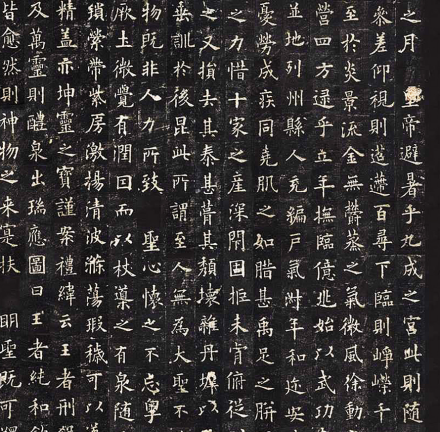 之月皇帝避暑乎九成之宫此則随
參差仰視則迢遰百尋下臨則崢嶸千
至於炎景流金無欝蒸之氣微風徐動
營四方逮乎立年撫臨億兆始以武功
並地列州縣人充編戶氣淑年和迩安
憂勞成疾同堯肌之如腊甚禹足之胼
之力惜十家之産深閇固拒未肯俯從
之又損去其泰甚葺其頹壞雜丹墀以
垂訓於後昆此所謂至人無為大聖不
物既非人力所致 聖心懷之不忘粤
厥土微覺有潤因而以杖導之有泉随
鎖縈帶紫房激揚清波滌蕩瑕穢可以
精盖亦坤靈之寶謹案禮緯云王者刑殺
及萬靈則醴泉出瑞應圖曰王者純和飲
皆愈然則神物之来寔扶 明聖既可蠲